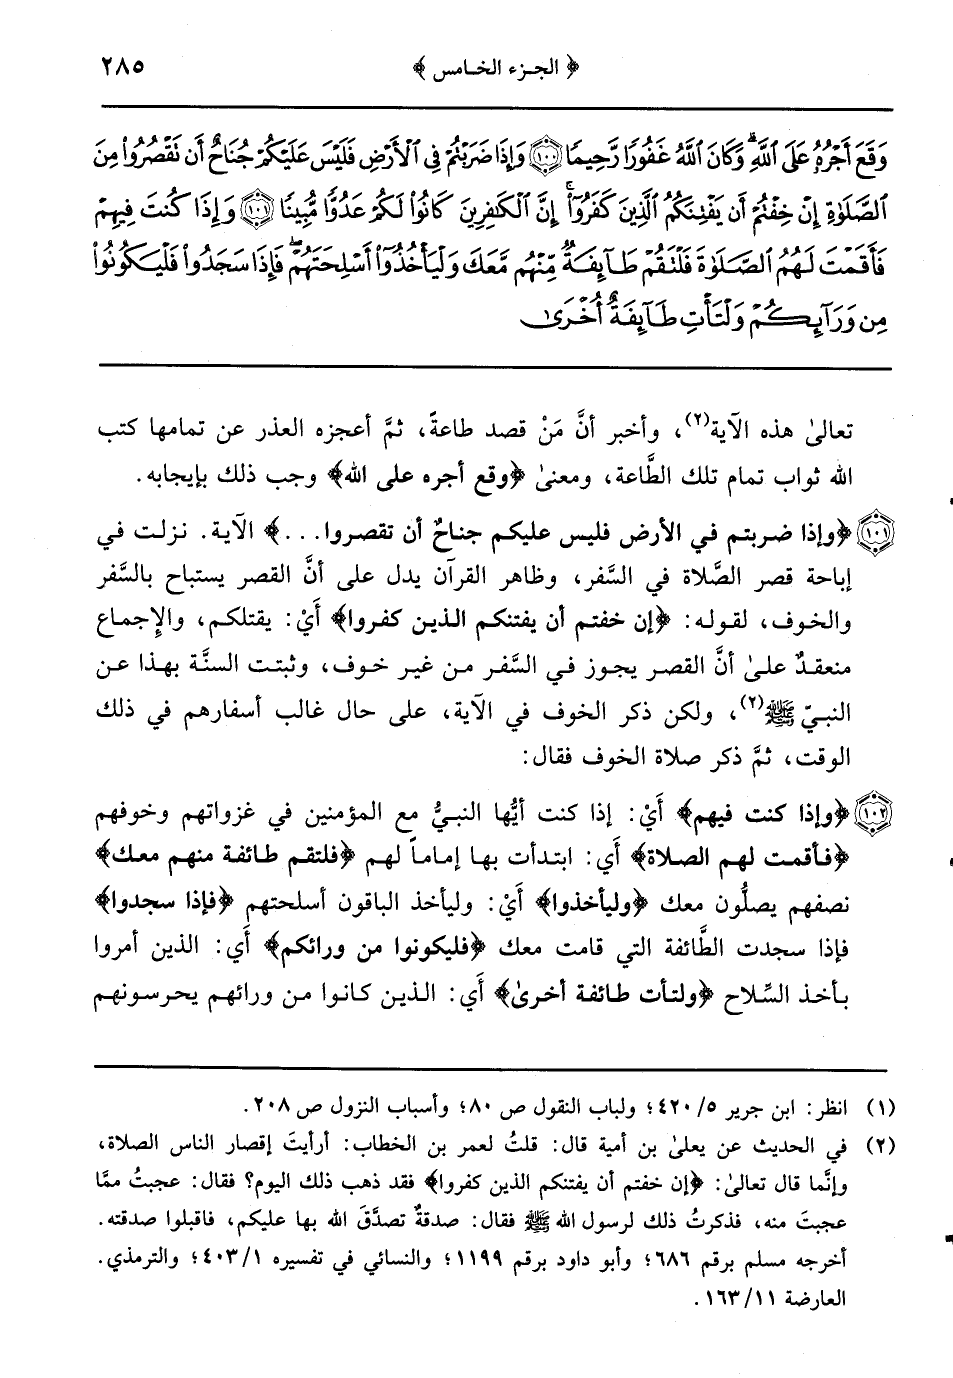 ﴿ الجزء الخامس ﴾ ٢٨٥
وَقَعَ أَجْرُهُ عَلَى ٱللَّهِ ۗ وَكَانَ ٱللَّهُ غَفُورًا رَّحِيمًا ١٠٠ وَإِذَا ضَرَبْتُمْ فِى ٱلْأَرْضِ فَلَيْسَ عَلَيْكُمْ جُنَاحٌ أَن تَقْصُرُوا۟ مِنَ
ٱلصَّلَوٰةِ إِنْ خِفْتُمْ أَن يَفْتِنَكُمُ ٱلَّذِينَ كَفَرُوٓا۟ ۚ إِنَّ ٱلْكَٰفِرِينَ كَانُوا۟ لَكُمْ عَدُوًّا مُّبِينًا ١٠١ وَإِذَا كُنتَ فِيهِمْ
فَأَقَمْتَ لَهُمُ ٱلصَّلَوٰةَ فَلْتَقُمْ طَآئِفَةٌ مِّنْهُم مَّعَكَ وَلْيَأْخُذُوٓا۟ أَسْلِحَتَهُمْ ۖ فَإِذَا سَجَدُوا۟ فَلْيَكُونُوا۟
مِن وَرَآئِكُمْ وَلْتَأْتِ طَآئِفَةٌ أُخْرَىٰ
تعالىٰ هذه الآية(٢)، وأخبر أنَّ مَنْ قصد طاعةً، ثمَّ أعجزه العذر عن تمامها كتب
الله ثواب تمام تلك الطَّاعة، ومعنىٰ ﴿وقع أجره على الله﴾ وجب ذلك بإيجابه.
١٠١ ﴿وإذا ضربتم في الأرض فليس عليكم جناحٌ أن تقصروا...﴾ الآية. نزلت في
إباحة قصر الصَّلاة في السَّفر، وظاهر القرآن يدل على أنَّ القصر يستباح بالسَّفر
والخوف، لقوله: ﴿إن خفتم أن يفتنكم الذين كفروا﴾ أَيْ: يقتلكم، والإِجماع
منعقدٌ علىٰ أنَّ القصر يجوز في السَّفر من غير خوف، وثبتت السنَّة بهذا عن
النبيّ ﷺ(٢)، ولكن ذكر الخوف في الآية، على حال غالب أسفارهم في ذلك
الوقت، ثمَّ ذكر صلاة الخوف فقال:
١٠٢ ﴿وإذا كنت فيهم﴾ أَيْ: إذا كنت أيُّها النبيُّ مع المؤمنين في غزواتهم وخوفهم
﴿فأقمت لهم الصلاة﴾ أَي: ابتدأت بها إماماً لهم ﴿فلتقم طائفة منهم معك﴾
نصفهم يصلُّون معك ﴿وليأخذوا﴾ أَيْ: وليأخذ الباقون أسلحتهم ﴿فإذا سجدوا﴾
فإذا سجدت الطَّائفة التي قامت معك ﴿فليكونوا من ورائكم﴾ أَي: الذين أمروا
بأخذ السِّلاح ﴿ولتأت طائفة أخرىٰ﴾ أَي: الذين كانوا من ورائهم يحرسونهم
(١) انظر: ابن جرير ٤٢٠/٥؛ ولباب النقول ص ٨٠؛ وأسباب النزول ص ٢٠٨.
(٢) في الحديث عن يعلىٰ بن أمية قال: قلتُ لعمر بن الخطاب: أرأيتَ إقصار الناس الصلاة،
وإنَّما قال تعالىٰ: ﴿إن خفتم أن يفتنكم الذين كفروا﴾ فقد ذهب ذلك اليوم؟ فقال: عجبتُ ممَّا
عجبتَ منه، فذكرتُ ذلك لرسول الله ﷺ فقال: صدقةٌ تصدَّقَ الله بها عليكم، فاقبلوا صدقته.
أخرجه مسلم برقم ٦٨٦؛ وأبو داود برقم ١١٩٩؛ والنسائي في تفسيره ٤٠٣/١؛ والترمذي.
العارضة ١٦٣/١١.